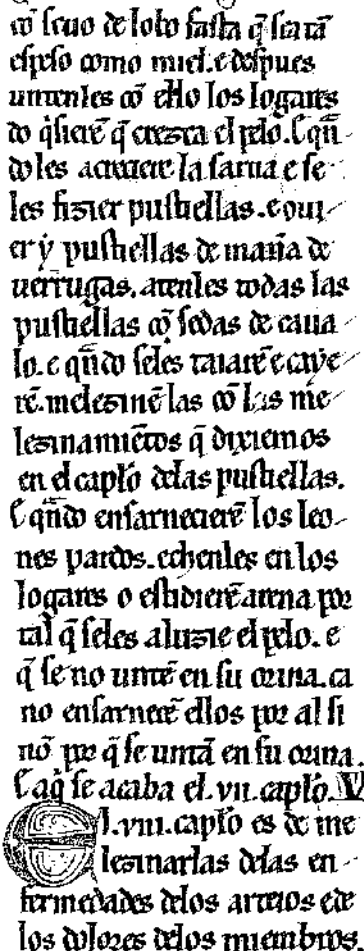 cõ seuo de lobo fasta q̃ sea tã
espeso como miel. e despues
unten les cõ ello los logares
do q̃siere q̃ cresca el pelo. E qñ
do les acaeciere la sarna e se
les fizier pustiellas. e oui
er ỹ pustiellas de maña de
uerrugas. aten les todas las
pustiellas cõ sedas de caua
lo. e qñdo se les taiarẽ e caye
rẽ. melezinẽ las cõ las me
lezinamiẽtos q̃ dixiemos
en el caplo delas pustiellas.
E qñdo ensarnecierẽ los leo
nes pardos. echen les en los
logares o estidierẽ arena por
tal q̃ se les aluzie el pelo. e
q̃ se no untẽ en su orina. ca
no ensarnecẽ ellos por al si
nõ por q̃ se untã en su orina.
E aq̃ se acaba el .vii. caplo. V
El .viii. caplo es de me
lezinarlas delas en
fermedades delos arteios e de
los dolores delos miembros.